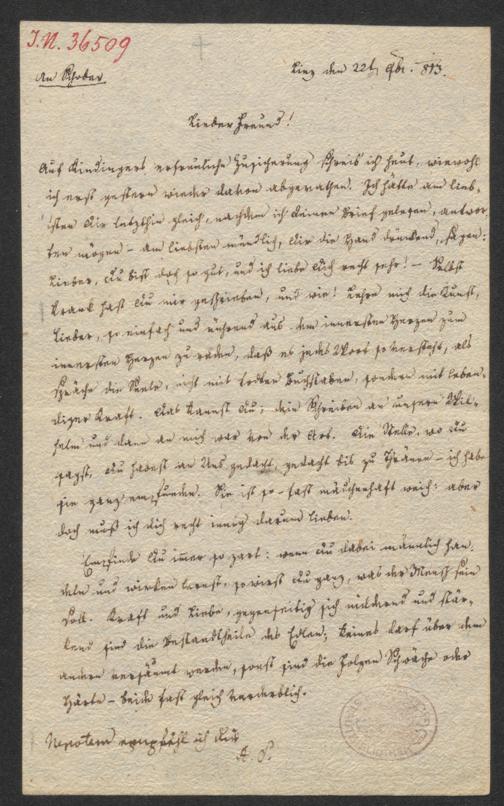 I.N. 36509
An Schober.
Linz den 22t 8br. 813.
Lieber Freund!
Auf Kindingers erfreuliche Zusicherung schreib ich heut, wiewohl
ich erst gestern wieder davon abgerathen. Ich hätte am lieb-
sten dir letzthin gleich, nachdem ich deinen Brief gelesen, antwor-
ten mögen – am liebsten mündlich, dir die Hand drückend, sagen:
Lieber, du bist doch so gut, und ich liebe dich recht sehr! – Selbst
krank hast du mir geschrieben, und wie! Lehre mich die Kunst,
Lieber, so einfach und rührend aus dem innersten Herzen zum
innersten Herzen zu reden, daß es jedes Wort so versteht, als
spräche die Seele, nicht mit todten Buchstaben, sondern mit leben-
diger Kraft. Das kannst du; dein Schreiben an unsern Wil-
helm und dann an mich war von der Art. Die Stelle, wo du
sagst, du habest an Uns gedacht, gedacht bis zu Thränen – ich habe
sie ganz empfunden. Sie ist so fast mädchenhaft weich: aber
doch muß ich dich recht innig darum lieben.
Empfinde du immer so zart: wenn du dabei männlich han-
deln und wirken lernst, so wirst du ganz, was der Mensch sein
soll. Kraft und Liebe, gegenseitig sich mildernd und stär-
kend sind die Bestandtheile des Edlen; keines darf über dem
andern versäumt werden, sonst sind die Folgen Schwäche oder
Härte – beide fast gleich verderblich.
empfehl ich dir
A. O.